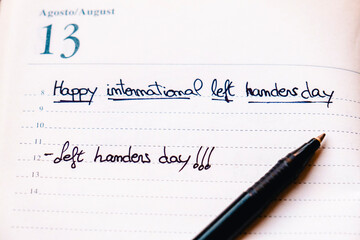 Agosto/August
13
8 Happy international left handers day
9
10
11
12 - left handers day!!!
13
14